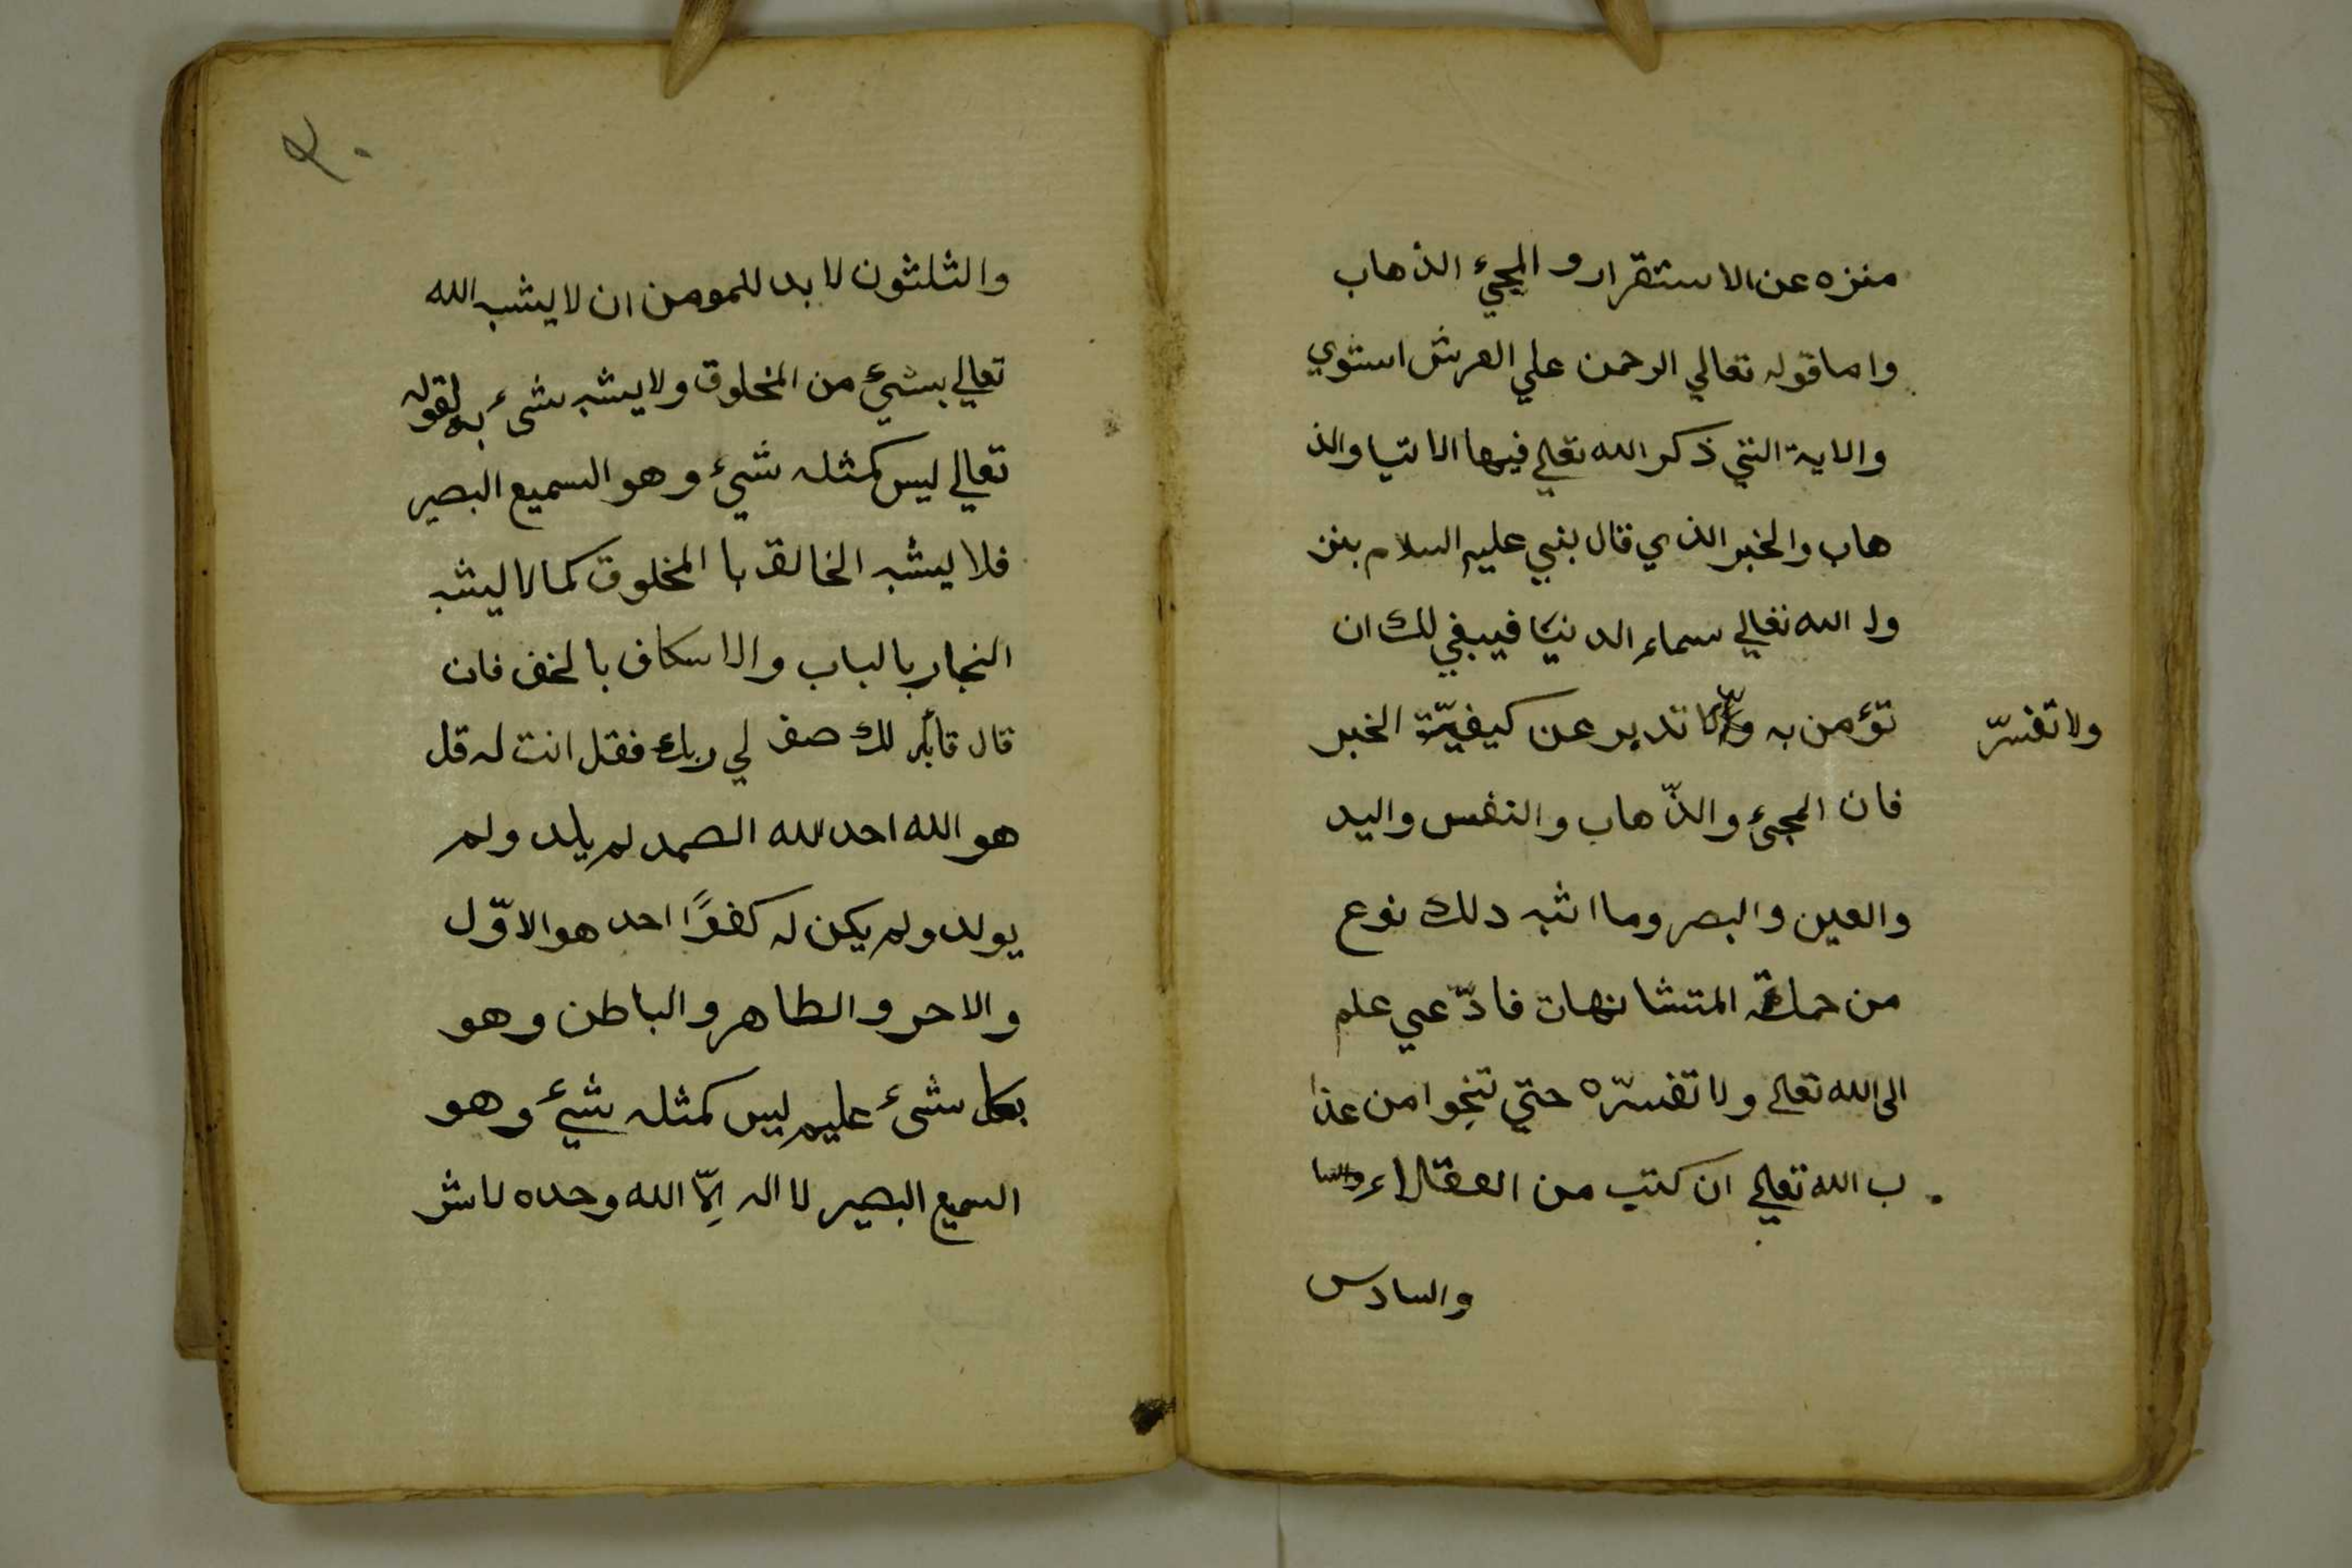 منزه عن الاستقرار و المجيء الذهاب
واما قوله تعالي الرحمن علي العرش استوي
والاية التي ذكر الله تعالي فيها الاتيا والذ
هاب والخبر الذي قال بنبي عليه السلام بنز
ول الله تعالي سماء الدنيا فيبغي لك ان
تؤمن به ولا تدبر عن كيفيّة الخبر
ولا تفسّر
فان المجيء والذّهاب والنفس واليد
والعين والبصر وما اشبه دلك نوع
من جملة المتشابهات فادّعي علم
الى الله تعالى ولا تفسّره حتي تنجوا من عذا
ب الله تعالي ان كنتب من العقلاء
والسادس
٣٠
والثلثون لا بد للمومن ان لا يشبه الله
تعالي بشيء من المخلوق ولا يشبه شيء به لقوله
تعالي ليس كمثله شيء وهو السميع البصير
فلا يشبه الخالق با المخلوق كما لا يشبه
النجار بالباب والاسكاف بالخف فان
قال قائل لك صف لي ربك فقل انت له قل
هو الله احد الله الصمد لم يلد ولم
يولد ولم يكن له كفوًا احد هو الاوّل
والاحر والطاهر والباطن وهو
بكل شيء عليم ليس كمثله شيء وهو
السميع البصير لا اله اِلّا الله وحده لا شر